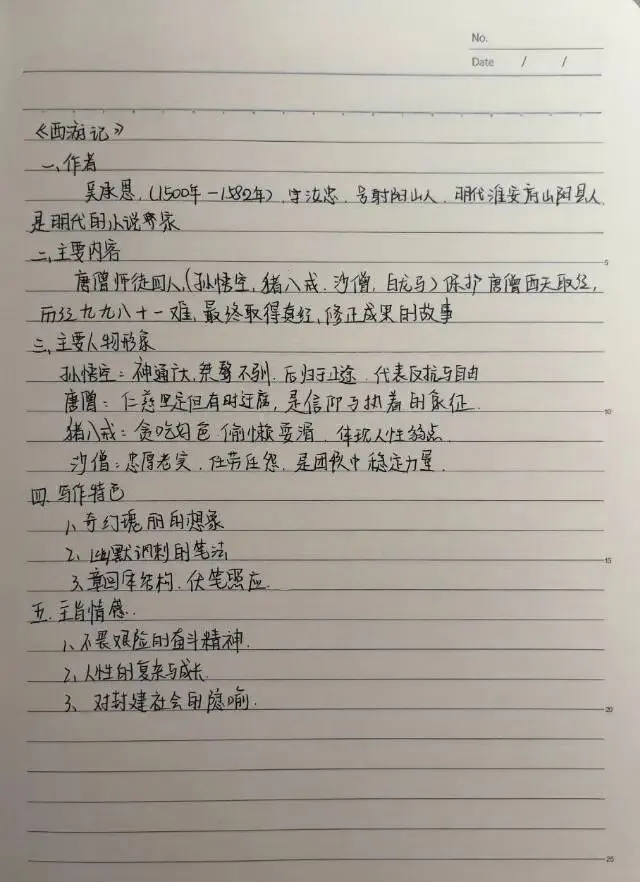 No.
Date / /
《西游记》
一、作者
吴承恩,(1500年-1582年),字汝忠,号射阳山人,明代淮安府山阳县人
是明代的小说家
二、主要内容
唐僧师徒四人,(孙悟空,猪八戒,沙僧,白龙马)保护唐僧西天取经,
历经九九八十一难,最终取得真经,修正成果的故事
三、主要人物形象
孙悟空:神通广大,桀骜不驯,后归于正途,代表反抗与自由
唐僧:仁慈坚定但有时迂腐,是信仰与执着的象征.
猪八戒:贪吃好色,偷懒耍滑,体现人性弱点
沙僧:忠厚老实,任劳任怨,是团队中稳定力量.
四.写作特色
1、奇幻瑰丽的想象
2、幽默讽刺的笔法
3、章回体结构、伏笔照应
五.主旨情感.
1、不畏艰险的奋斗精神.
2、人性的复杂与成长.
3、对封建社会的隐喻.
5
10
15
20
25